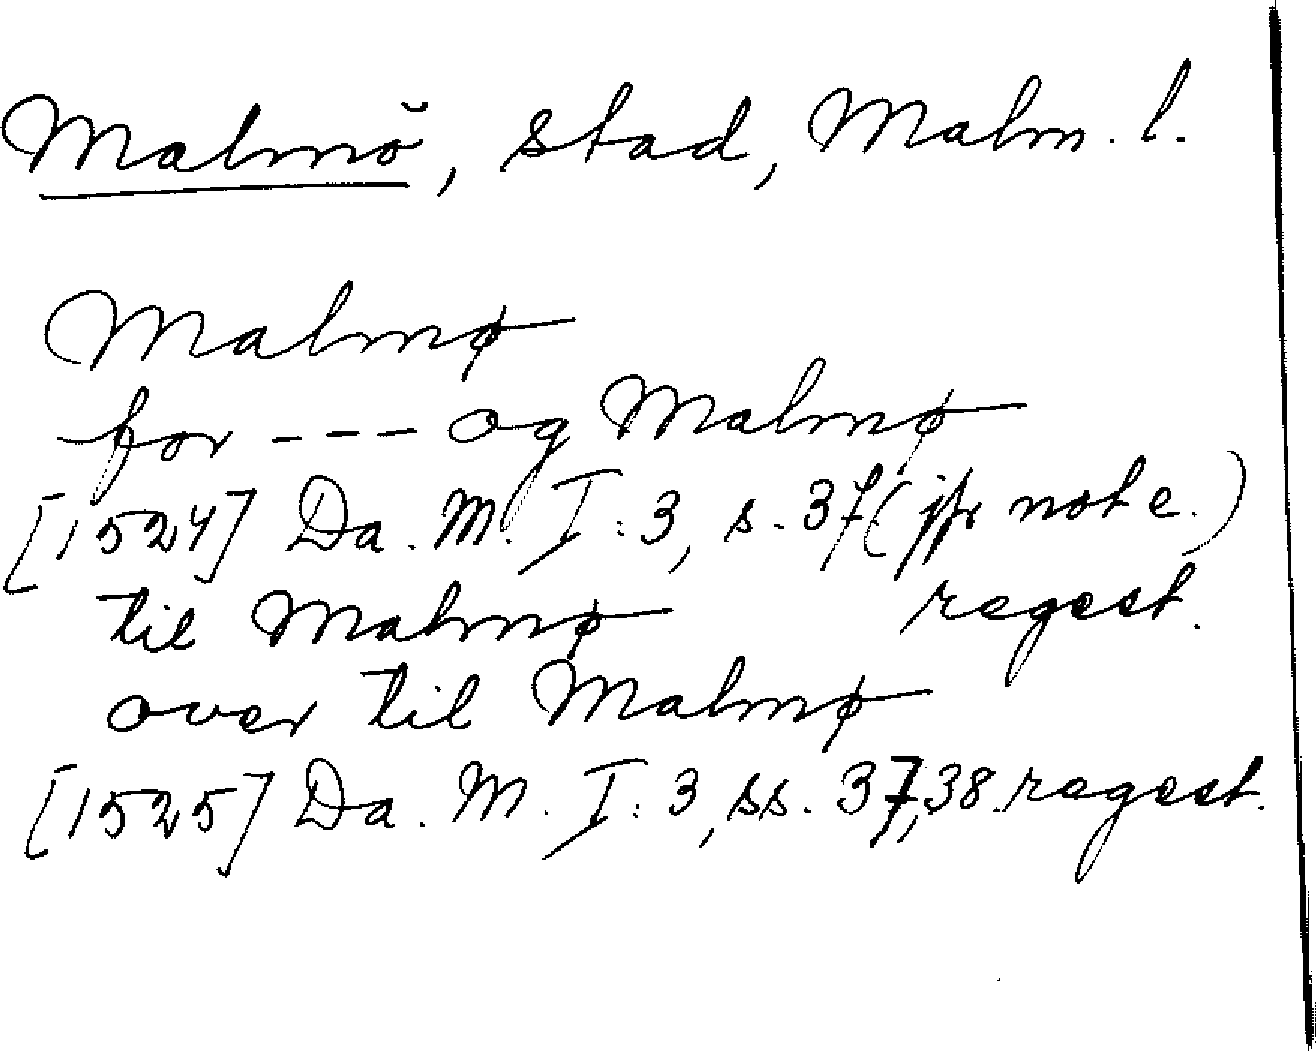 Malmö, stad, Malm. l.
Malmø
for --- og Malmø
[1524] Da. M. I: 3, s. 37 (jfr note.)
til Malmø regest.
over til Malmø
[1525] Da. M. I: 3, ss. 37, 38. regest.